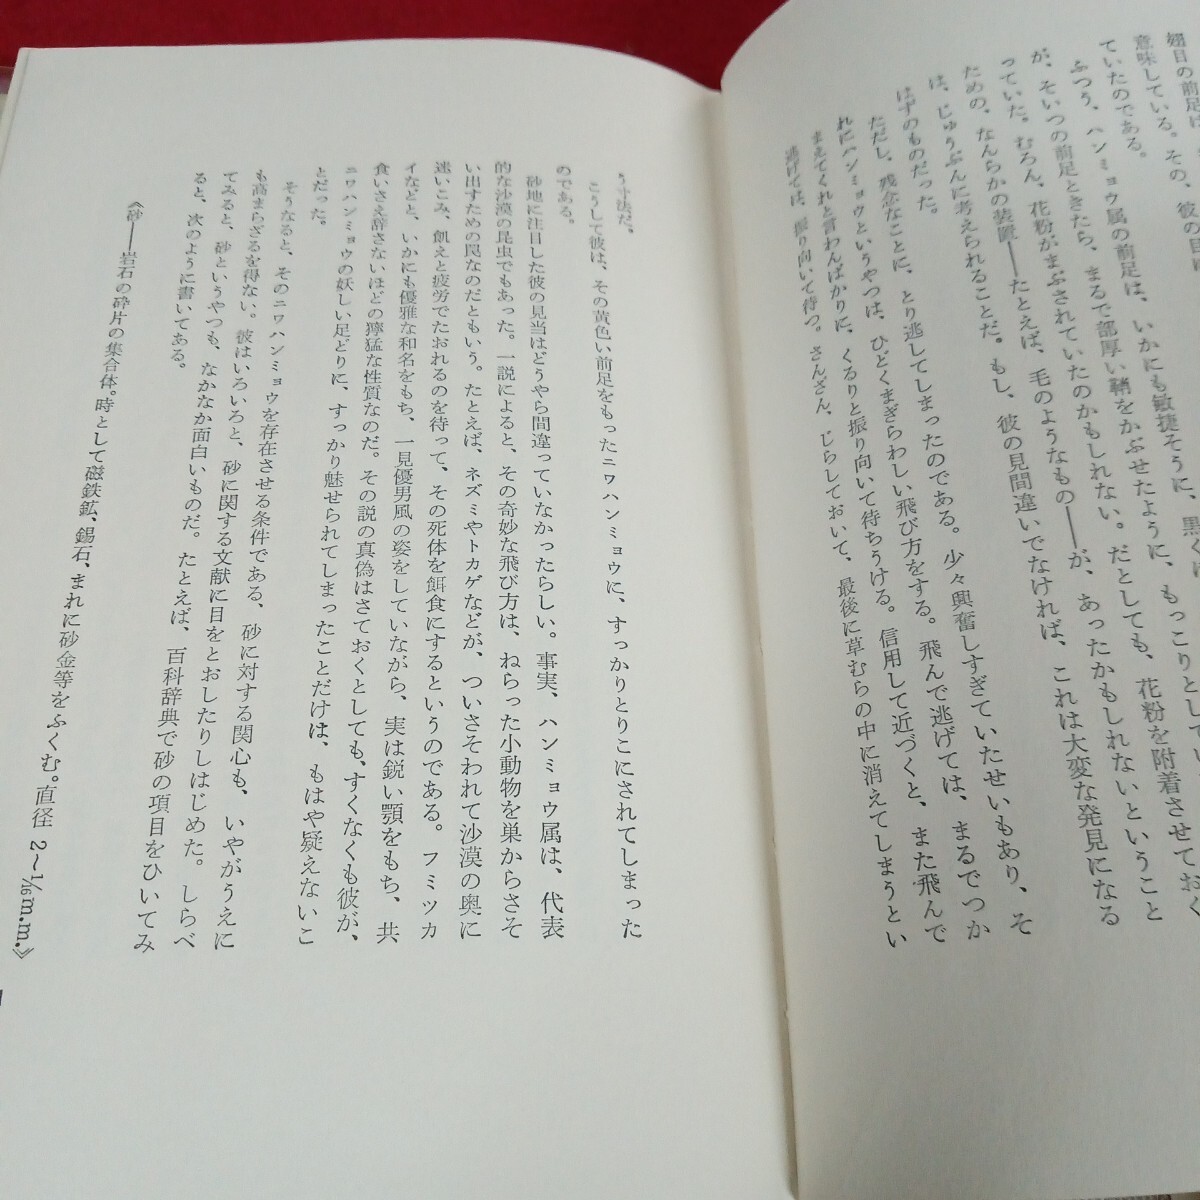 翅目の前足は、
意味している。その、彼の目
ていたのである。
ふつう、ハンミョウ属の前足は、いかにも敏捷そうに、黒く
が、そいつの前足ときたら、まるで部厚い鞘をかぶせたように、もっこりとして
っていた。むろん、花粉がまぶされていたのかもしれない。だとしても、花粉を附着させておく
ための、なんらかの装置――たとえば、毛のようなもの――が、あったかもしれないということ
は、じゅうぶんに考えられることだ。もし、彼の見間違いでなければ、これは大変な発見になる
はずのものだった。
ただし、残念なことに、とり逃してしまったのである。少々興奮しすぎていたせいもあり、そ
れにハンミョウというやつは、ひどくまぎらわしい飛び方をする。飛んで逃げては、まるでつか
まえてくれと言わんばかりに、くるりと振り向いて待ちうける。信用して近づくと、また飛んで
逃げては、振り向いて待つ。さんざん、じらしておいて、最後に草むらの中に消えてしまうとい
う寸法だ。
こうして彼は、その黄色い前足をもったニワハンミョウに、すっかりとりこにされてしまった
のである。
砂地に注目した彼の見当はどうやら間違っていなかったらしい。事実、ハンミョウ属は、代表
的な沙漠の昆虫でもあった。一説によると、その奇妙な飛び方は、ねらった小動物を巣からさそ
い出すための罠なのだともいう。たとえば、ネズミやトカゲなどが、ついさそわれて沙漠の奥に
迷いこみ、飢えと疲労でたおれるのを待って、その死体を餌食にするというのである。フミツカ
イなどと、いかにも優雅な和名をもち、一見優男風の姿をしていながら、実は鋭い顎をもち、共
食いさえ辞さないほどの獰猛な性質なのだ。その説の真偽はさておくとしても、すくなくも彼が、
ニワハンミョウの妖しい足どりに、すっかり魅せられてしまったことだけは、もはや疑えないこ
とだった。
そうなると、そのニワハンミョウを存在させる条件である、砂に対する関心も、いやがうえに
も高まらざるを得ない。彼はいろいろと、砂に関する文献に目をとおしたりしはじめた。しらべ
てみると、砂というやつも、なかなか面白いものだ。たとえば、百科辞典で砂の項目をひいてみ
ると、次のように書いてある。
《砂――岩石の砕片の集合体。時として磁鉄鉱、錫石、まれに砂金等をふくむ。直径 2〜1/16m.m.》